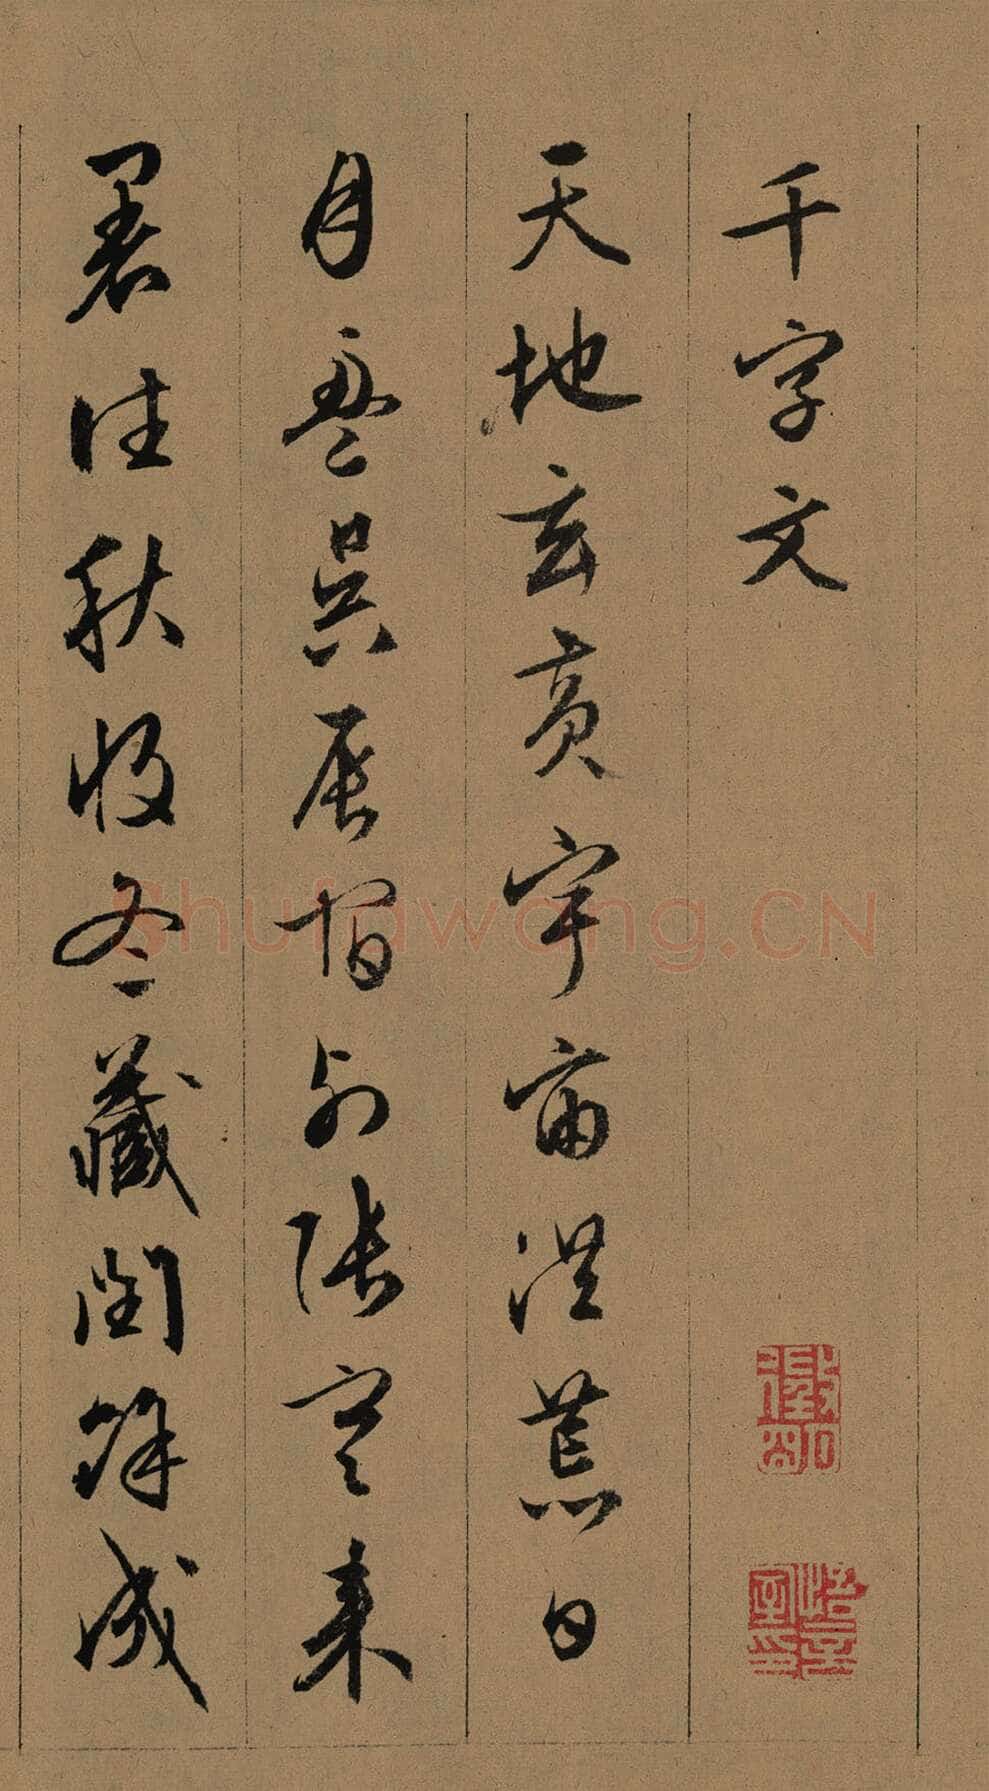 千字文
天地玄黄宇宙洪荒日
月盈昃辰宿列张寒来
暑往秋收冬藏闰余成
Shufawang.CN